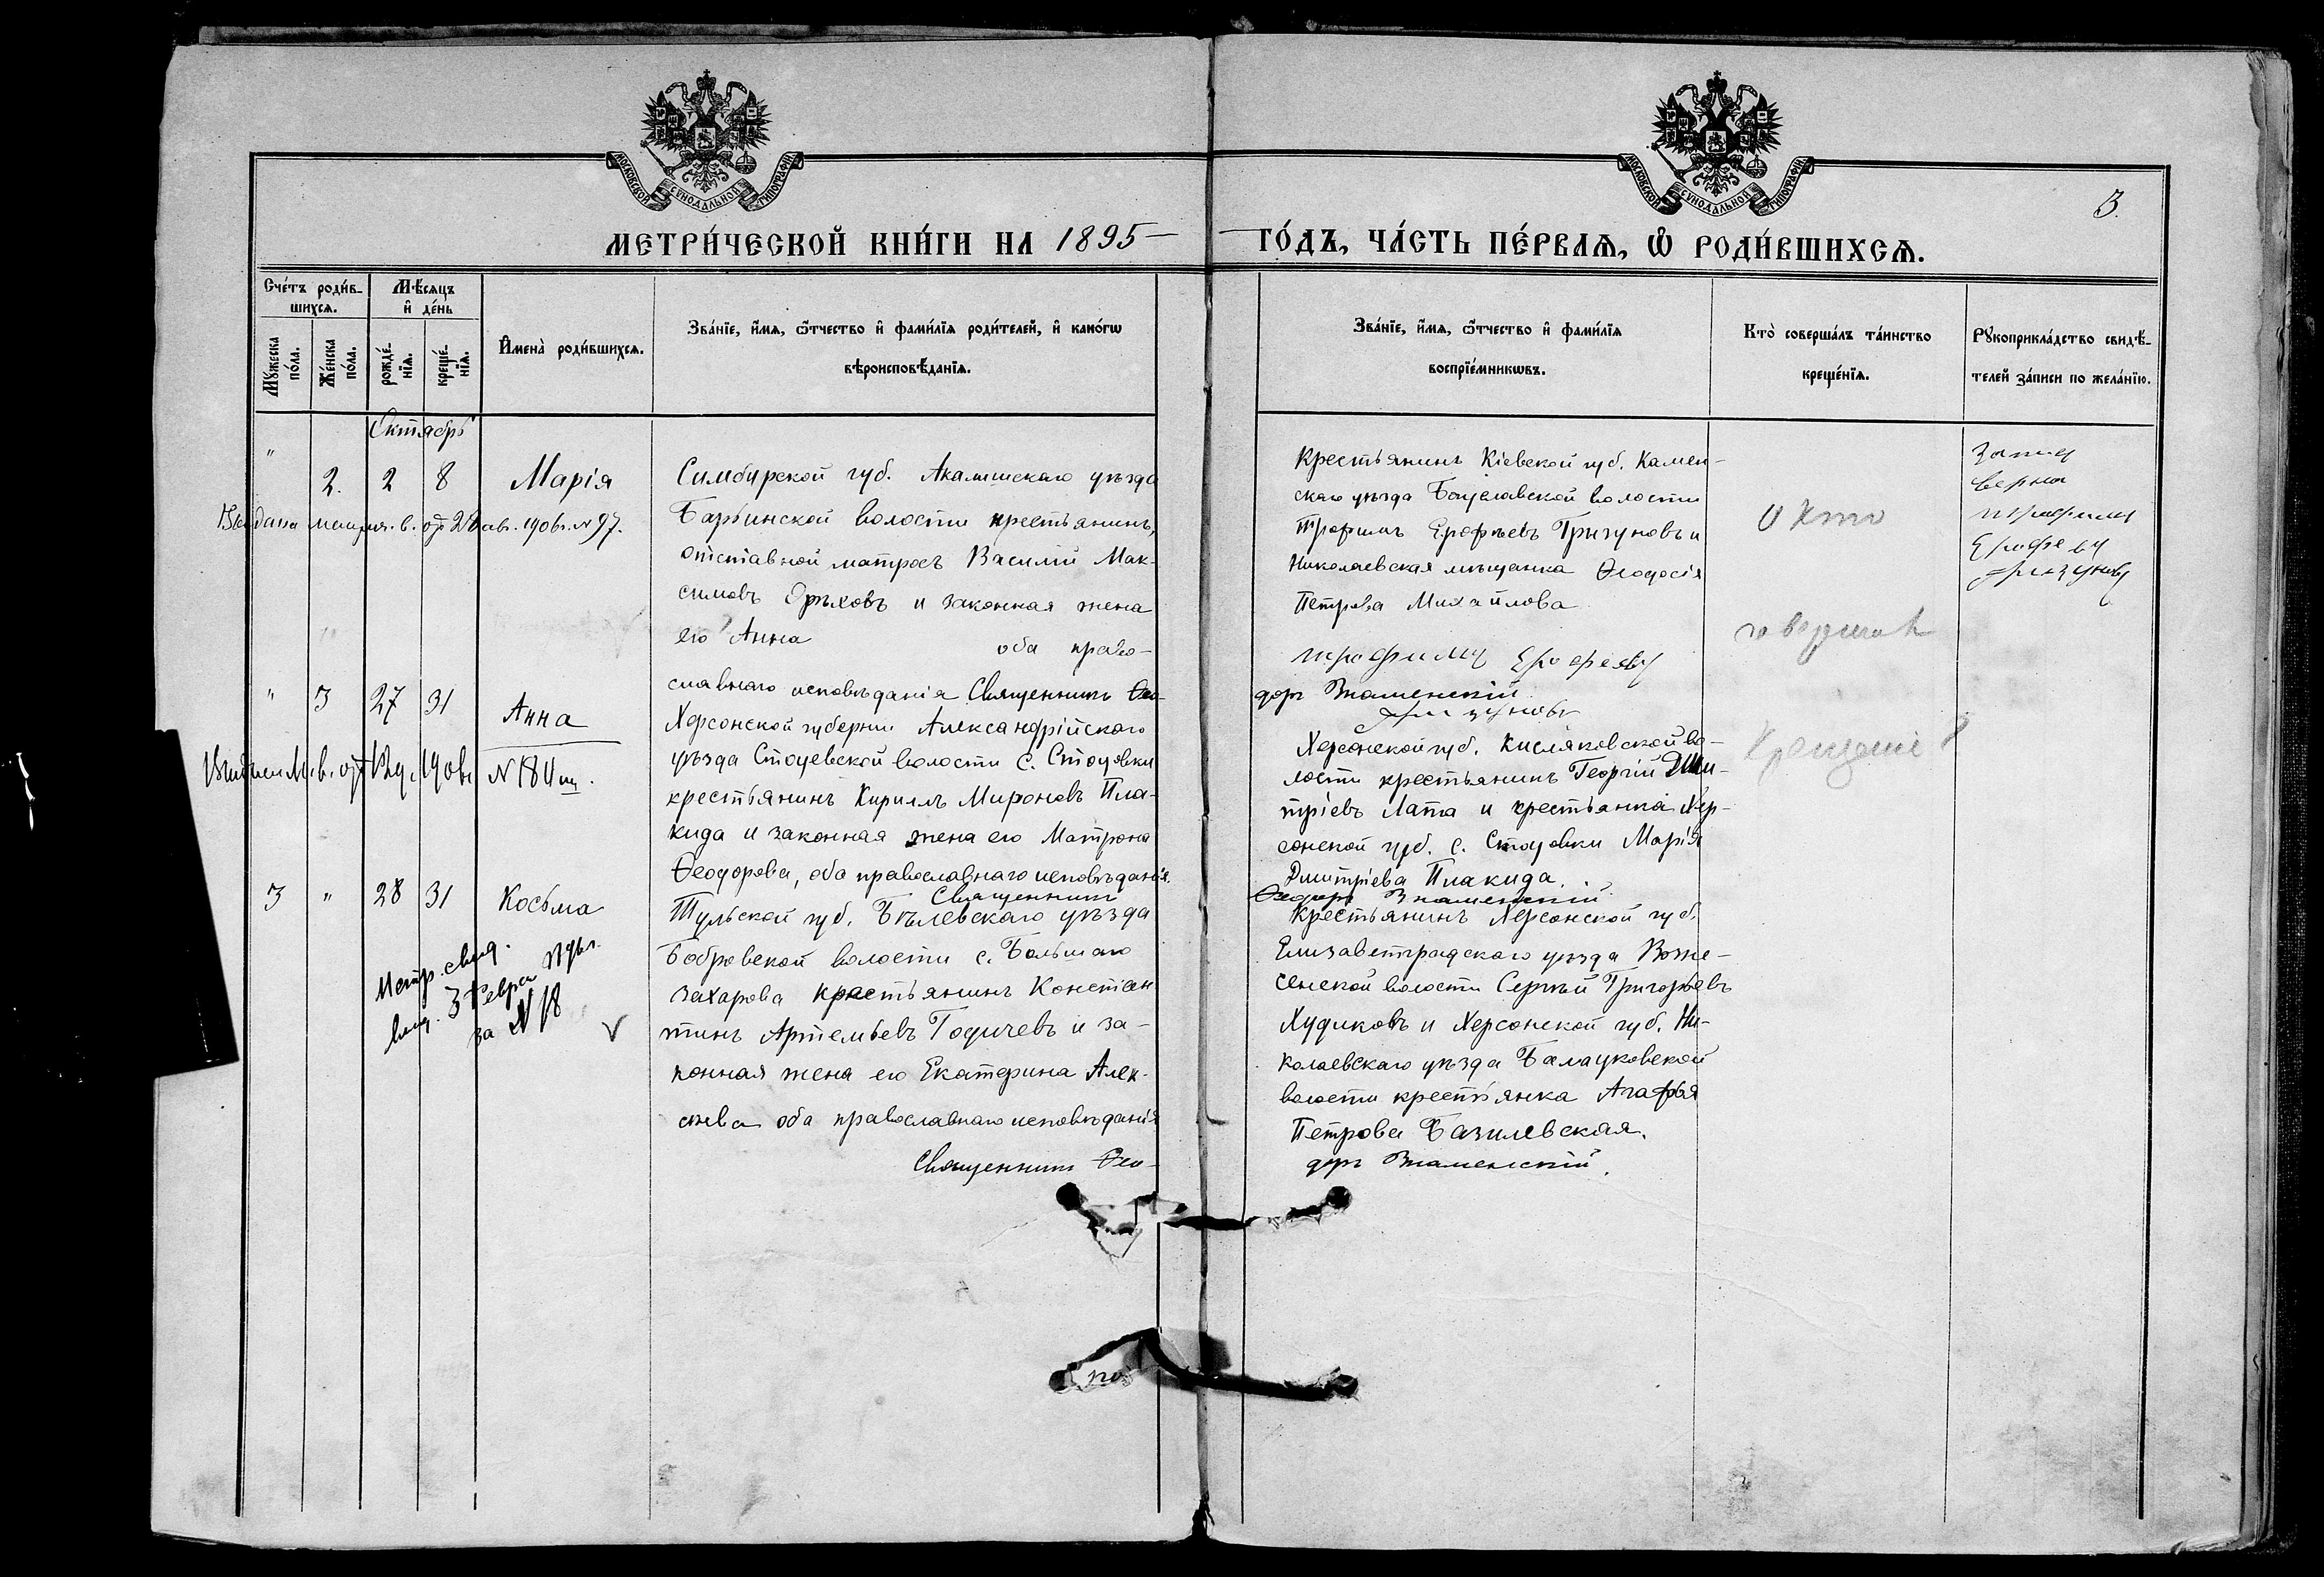 МОСКОВСКОЙ СУНОДАЛЬНОЙ ТИПОГРАФІИ
МОСКОВСКОЙ СУНОДАЛЬНОЙ ТИПОГРАФІИ
3.
МЕТРИ́ЧЕСКОЙ КНИ́ГИ НА 1895
ГО́ДЪ, ЧА́СТЬ ПЕ́РВАѦ, Ѽ РОДИ́ВШИХСѦ.
Сче́тъ роди́в-
шихсѧ.
Мѣ́сяцъ
и҆ де́нь
Мꙋ́жеска
по́ла.
Же́нска
по́ла.
рожде́-
нїѧ.
креще́-
нїѧ.
И҆мена̀ роди́вшихсѧ.
Зва́нїе, и҆́мѧ, ѻ҆́тчество и҆ фами́лїѧ роди́телей, и҆ како́гѡ
вѣроисповѣ́данїѧ.
Зва́нїе, и҆́мѧ, ѻ҆́тчество и҆ фами́лїѧ
воспрїе́мникѡвъ.
Кто̀ соверша́лъ та́инство
креще́нїѧ.
Рꙋкоприкла́дство свидѣ́-
телей за́писи по жела́нїю.
Октябрь
" 2. 2 8 Марія
Симбирской губ. уѣзда
Барьинской волости крестьянинъ,
отставной матросъ Василій Мак-
симовъ Орѣховъ и законная жена
его Анна оба право-
славнаго исповѣданія Священникъ Ѳео-
Крестьянинъ Кіевской губ. Камен-
скаго уѣзда Богуславской волости
Трофимъ Ерофѣевъ Тригуновъ и
Николаевская мѣщанка Ѳеодосія
Петрова Михайлова
трофимъ Ерофеевъ
доръ Знаменскій
верна
№ 97.
" 3 27 31 Анна
№ 184
Херсонской губерніи Александрійскаго
уѣзда Стоуевской волости с. Стоуовки
крестьянинъ Кириллъ Мироновъ Пла-
кида и законная жена его Матрона
Ѳеодорова, оба православнаго исповѣданія.
Священникъ
Херсонской губ. Кисляковской во-
лости крестьянинъ Георгій Дми-
тріевъ Лата и крестьянка Хер-
сонской губ. с. Стоуовки Марія
Дмитріева Плакида.
Ѳеодоръ Знаменскій
3 " 28 31 Косьма
Метр. свид.
выд. 3 Февра
за № 18
Тульской губ. Бѣлевскаго уѣзда
Бобровской волости с. Большаго
Захарова крестьянинъ Констан
тинъ Артемьевъ Годичевъ и за-
конная жена его Екатерина Алек-
сѣева оба православнаго исповѣданія
Священникъ Ѳео-
Крестьянинъ Херсонской губ.
Елизаветградскаго уѣзда Возне-
сенской волости Сергѣй Григорьевъ
Худиковъ и Херсонской губ. Ни-
колаевскаго уѣзда Балацковской
волости крестьянка Агафья
Петрова Базилевская.
доръ Знаменскій.